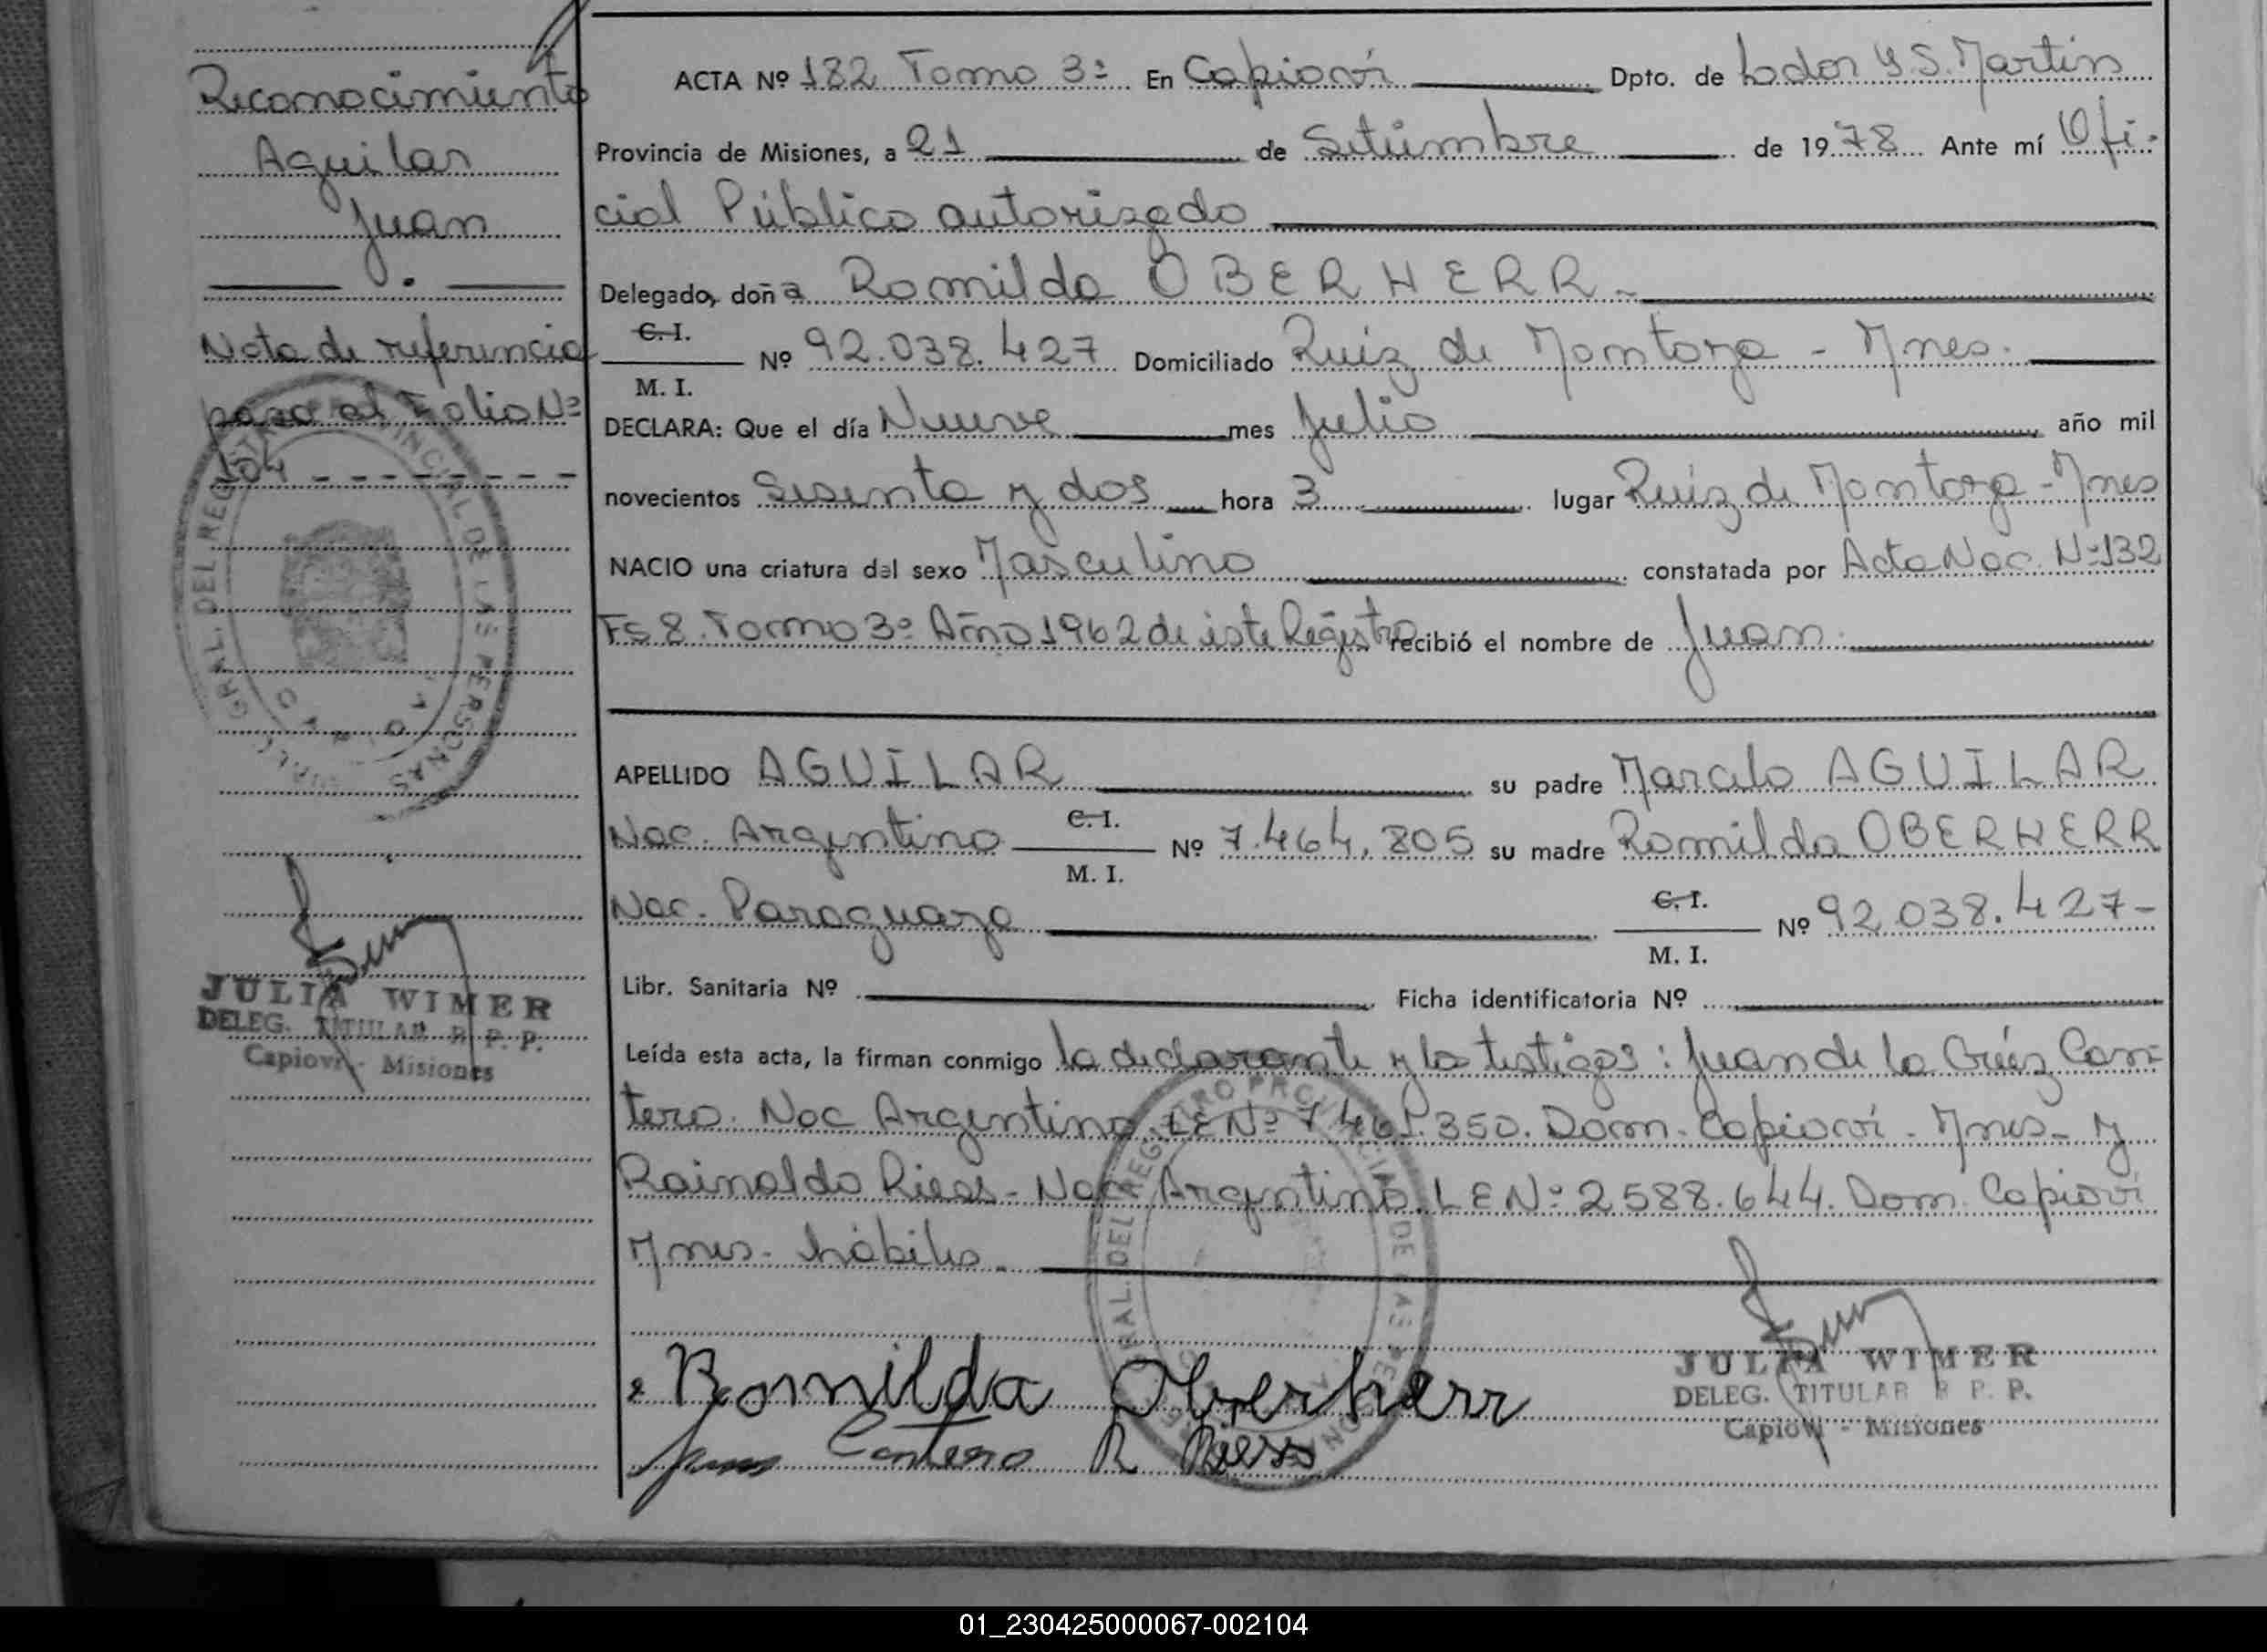 Reconocimiento
Aguilar
Juan
Nota de referencia
pasa al Folio Nº
104
JULIA WIMER
DELEG. TITULAR R. P. P.
Capioví - Misiones
ACTA Nº 182 Tomo 3º En Capioví Dpto. de Ldor G. S. Martin
Provincia de Misiones, a 21 de Setiembre de 1978 Ante mí Ofi-
cial Público autorizado
Delegado, doña Romilda OBERHERR-
C. I.
M. I. Nº 92.038.427 Domiciliado Ruiz de Montoya - Mnes.
DECLARA: Que el día Nueve mes Julio año mil
novecientos Sesenta y dos hora 3 lugar Ruiz de Montoya - Mnes
NACIO una criatura del sexo Masculino constatada por Acta Nac. Nº 132
Fs 8. Tomo 3º Año 1962 de este Registro recibió el nombre de Juan
APELLIDO AGUILAR su padre Marcelo AGUILAR
Nac. Argentino C. I. M. I. Nº 7.464.805 su madre Romilda OBERHERR
Nac. Paraguaya C. I. M. I. Nº 92.038.427-
Libr. Sanitaria Nº Ficha identificatoria Nº
Leída esta acta, la firman conmigo la declarante y los testigos: Juan de la Crúz Can-
tero. Nac Argentino. LE Nº 7461.350. Dom. Capioví - Mnes- y
Rainaldo Riess - Nac Argentino. LE Nº 2588.644. Dom. Capioví
Mnes- hábiles.
Romilda Oberherr
Juan Cantero R Riess
JULIA WIMER
DELEG. TITULAR R P. P.
Capioví - Misiones
01_230425000067-002104